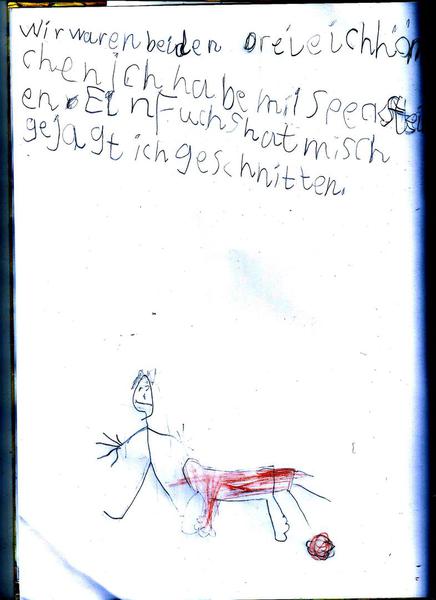 wir waren bei den dreieichhörn
chen ich habe mil
en. Ein Fuchs hat misch
gejagt ich geschnitten.